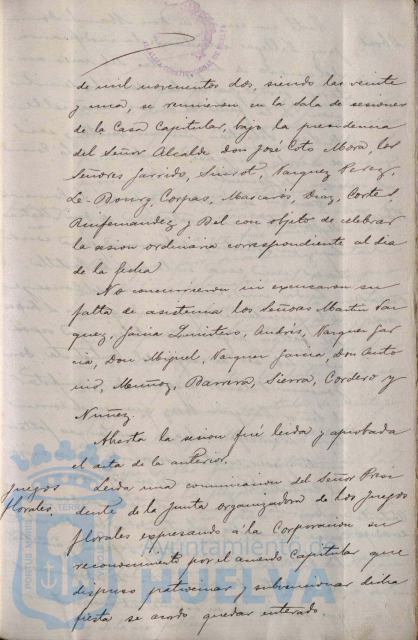 de mil novecientos dos, siendo las veinte
y una, se reunieron en la Sala de sesiones
de la Casa Capitular, bajo la presidencia
del Señor Alcalde don José Coto Mora, los
Señores Garrido, Siurot, Vazquez Perez,
Le-Bourg, Corpas, Mascarós, Diaz, Cortes,
Ruifernandez y Bel con objeto de celebrar
la sesion ordinaria correspondiente al dia
de la fecha
No concurrieron ni excusaron su
falta de asistencia los Señores Martin Vaz
quez, Garcia Quintero, Andrés, Vazquez Gar
cia, Don Miguel, Vazquez Garcia, don Anto
nio, Muñoz, Barrera, Sierra, Cordero y
Nuñez.
Abierta la sesion fué leida y aprobada
el acta de la anterior.
Juegos
florales.
Leida una comunicacion del Señor Presi
dente de la Junta organizadora de los Juegos
florales expresando á la Corporacion su
reconocimiento por el acuerdo Capitular que
dispuso patrocinar y subvencionar dicha
fiesta se acordó quedar enterado.
Ayuntamiento de
HUELVA